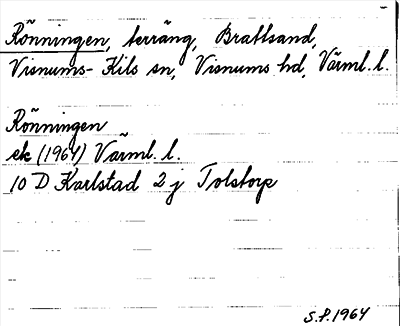 Rönningen, terräng, Brattsand,
Visnums-Kils sn, Visnums hd, Värml. l.
Rönningen
ek (1964) Värml. l.
10 D Karlstad 2 j Tolstorp
S.P. 1964